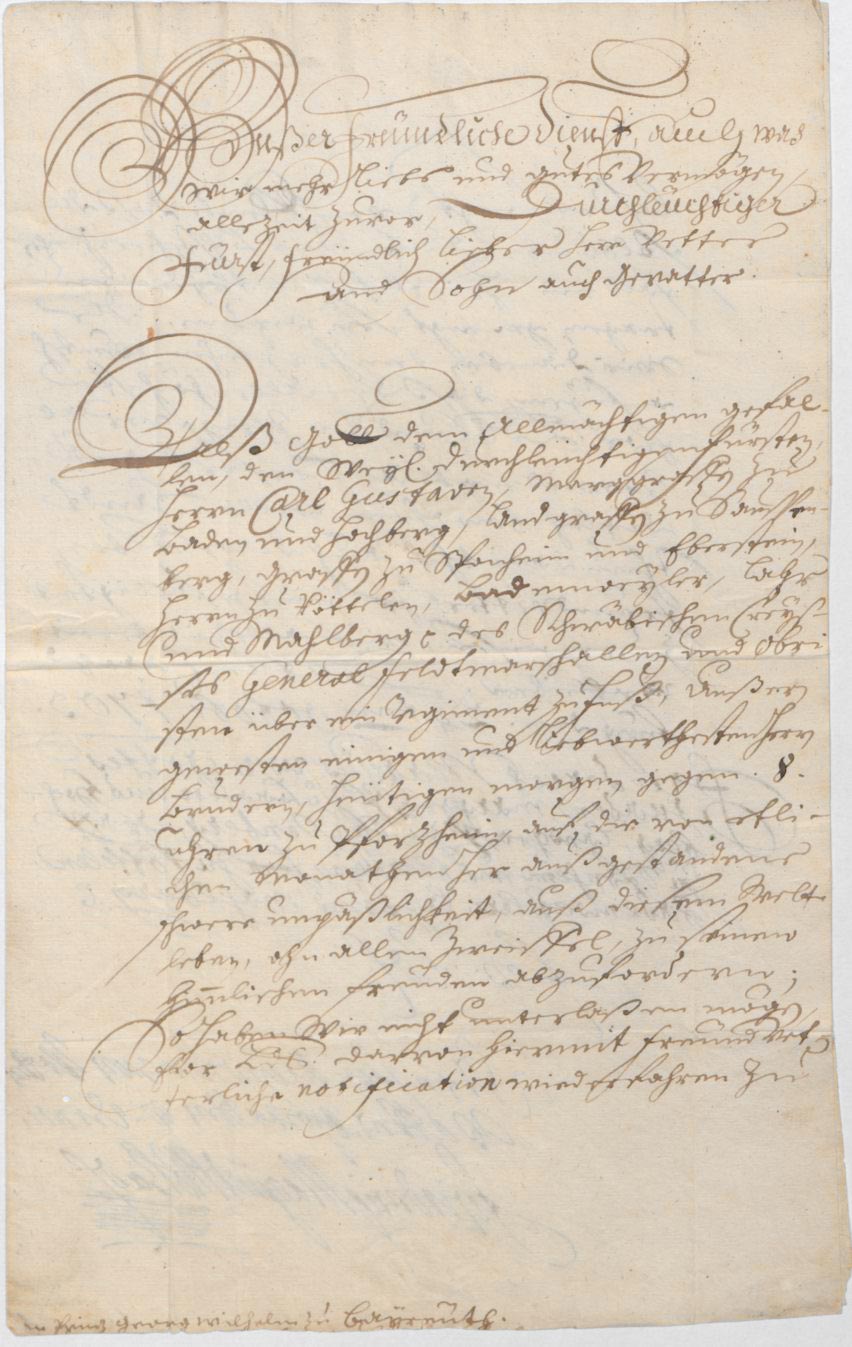 Unßer freündliche dienst, auch was
wir mehr liebs und gutes Vermögen,
allezeit zuvor, Durchleüchtiger
Fürst, freündlich lieber Herr Vetter
und Sohn auch Gevatter.
Alß Gott dem Allmächtigen gefal-
len, den Weyl. durchleüchtigen Fürsten,
Herrn Carl Gustaven, Marggraffen zu
Baden und Hochberg, Landgraffen zu Saussen-
berg, Graffen zu Sponheim und Eberstein,
Herrn zu Röttelen, Badenweyler, Lahr
und Mahlberg des Schwäbischen Creys-
ses General feldtmarschallen und Obri-
sten über ein Regiment zu fuß, Unßern
gewesten einigen und liebwerthesten Herrn
Brudern, heütigen morgen gegen 8.
uhren zu Pforzheim, auf die von etli-
chen Monathen her außgestandene
schwere unpäßlichkeit, auß diesem Welt
leben, ohn allen Zweiffel, zu seinen
himlischen freuden abzufordern;
So haben Wir nicht unterlaßen mögen,
Ew. Ld. darvon hiermit freund Vet-
terliche notification wiederfahren zu
An Prinz Georg Wilhelm zu Bayreüth.